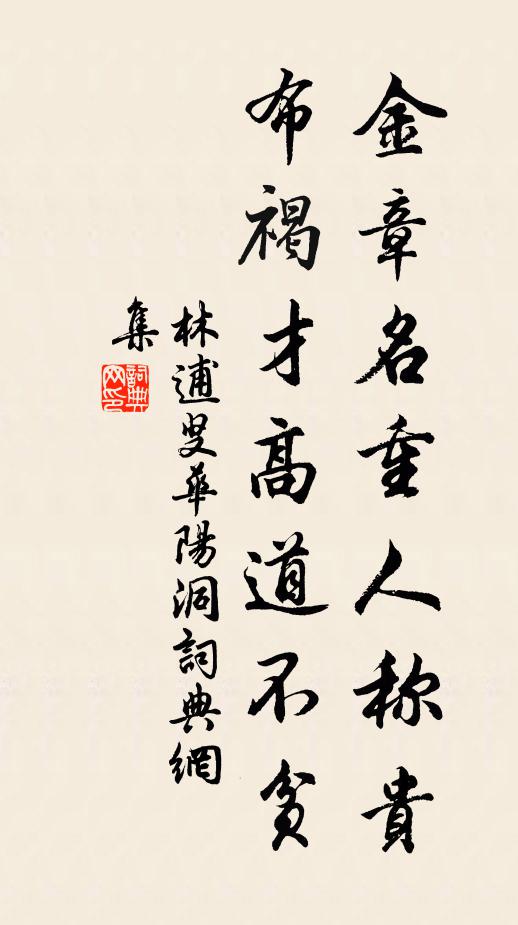 金章名重人称貴
布褐才高道不貧
林逋叟華陽洞詞典網
集
詞典
网印